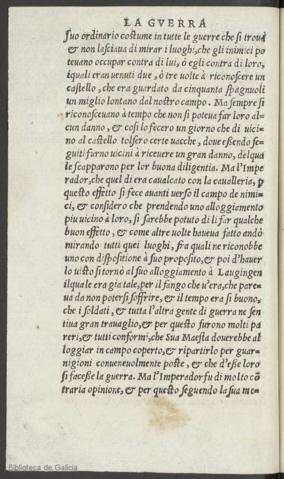 LA GVERRA
suo ordinario costume in tutte le guerre che si troua
& non lasciaua di mirar i luoghi, che gli inimici po
teuano occupar contra di lui, ò egli contra di loro,
i quali eran uenuti due, ò tre volte à riconoscere un
castello, che era guardato da cinquanta spagnuoli
un miglio lontano dal nostro campo. Ma sempre si
riconosceuano à tempo che non si poteua far loro al-
cun danno, & così lo fecero un giorno che di uici-
no al castello tolsero certe uacche, doue essendo se-
guiti furno uicini à riceuere un gran danno, del qual
le scapparono per lor buona diligentia. Ma l'Impe
rador, che quel dì era caualcato con la caualleria, p
questo effetto si fece auanti verso il campo de nimi-
ci, & considerò che prendendo uno alloggiamento
piu uicino à loro, si sarebbe potuto di li far qualche
buon effetto, & come altre volte haueua fatto andò
mirando tutti quei luoghi, fra quali ne riconobbe
uno con dispositione à suo proposito, & poi d'hauer
lo uisto si tornò al suo alloggiamento à Laugingen
il quale era gia tale, per il fango che u'era, che pare-
ua da non potersi soffrire, & il tempo era sì buono,
che i soldati, & tutta l'altra gente di guerra ne sen
tiua gran trauaglio, & per questo furono molti pa
reri, & tutti conformi, che Sua Maestà douerebbe al
loggiar in campo coperto, & ripartirlo per guar-
nigioni conueneuolmente poste, & che d'esse loro
si facesse la guerra. Ma l'Imperador fu di molto cõ
traria opinione, & per questo seguendo la sua me-
Biblioteca de Galicia